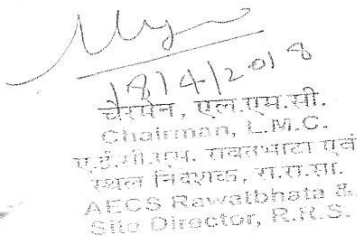 18/4/2018
चैरमेन, एल.एम.सी.
Chairman, L.M.C.
ए.ई.सी.एस. रावतभाटा एवं
स्थल निदेशक, रा.रा.सा.
AECS Rawatbhata &
Site Director, R.R.S.